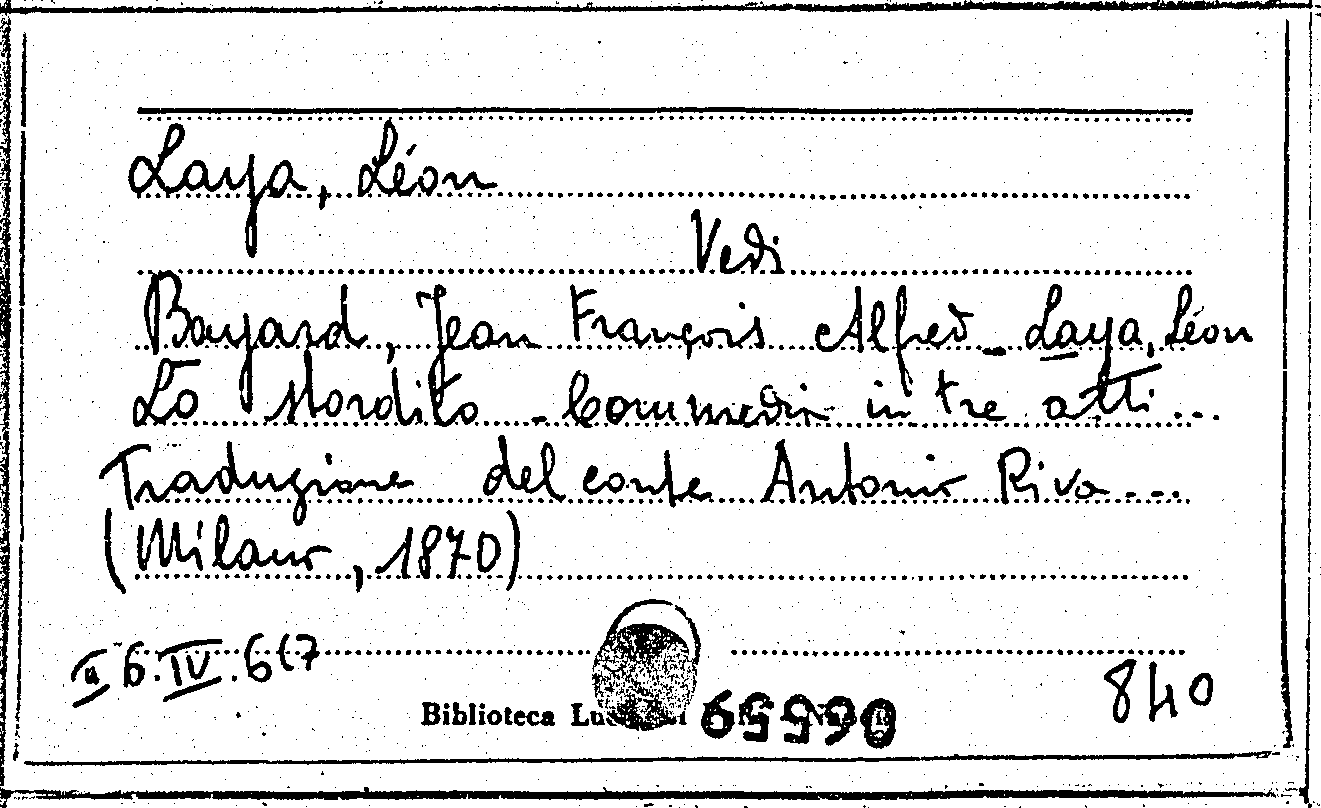 Laya, Léon
Vedi
Bayard, Jean François Alfred - Laya, Léon
Lo Stordito - Commedia in tre atti...
Traduzione del conte Antonio Riva...
(Milano, 1870)
B.IV.6(7
840
Biblioteca